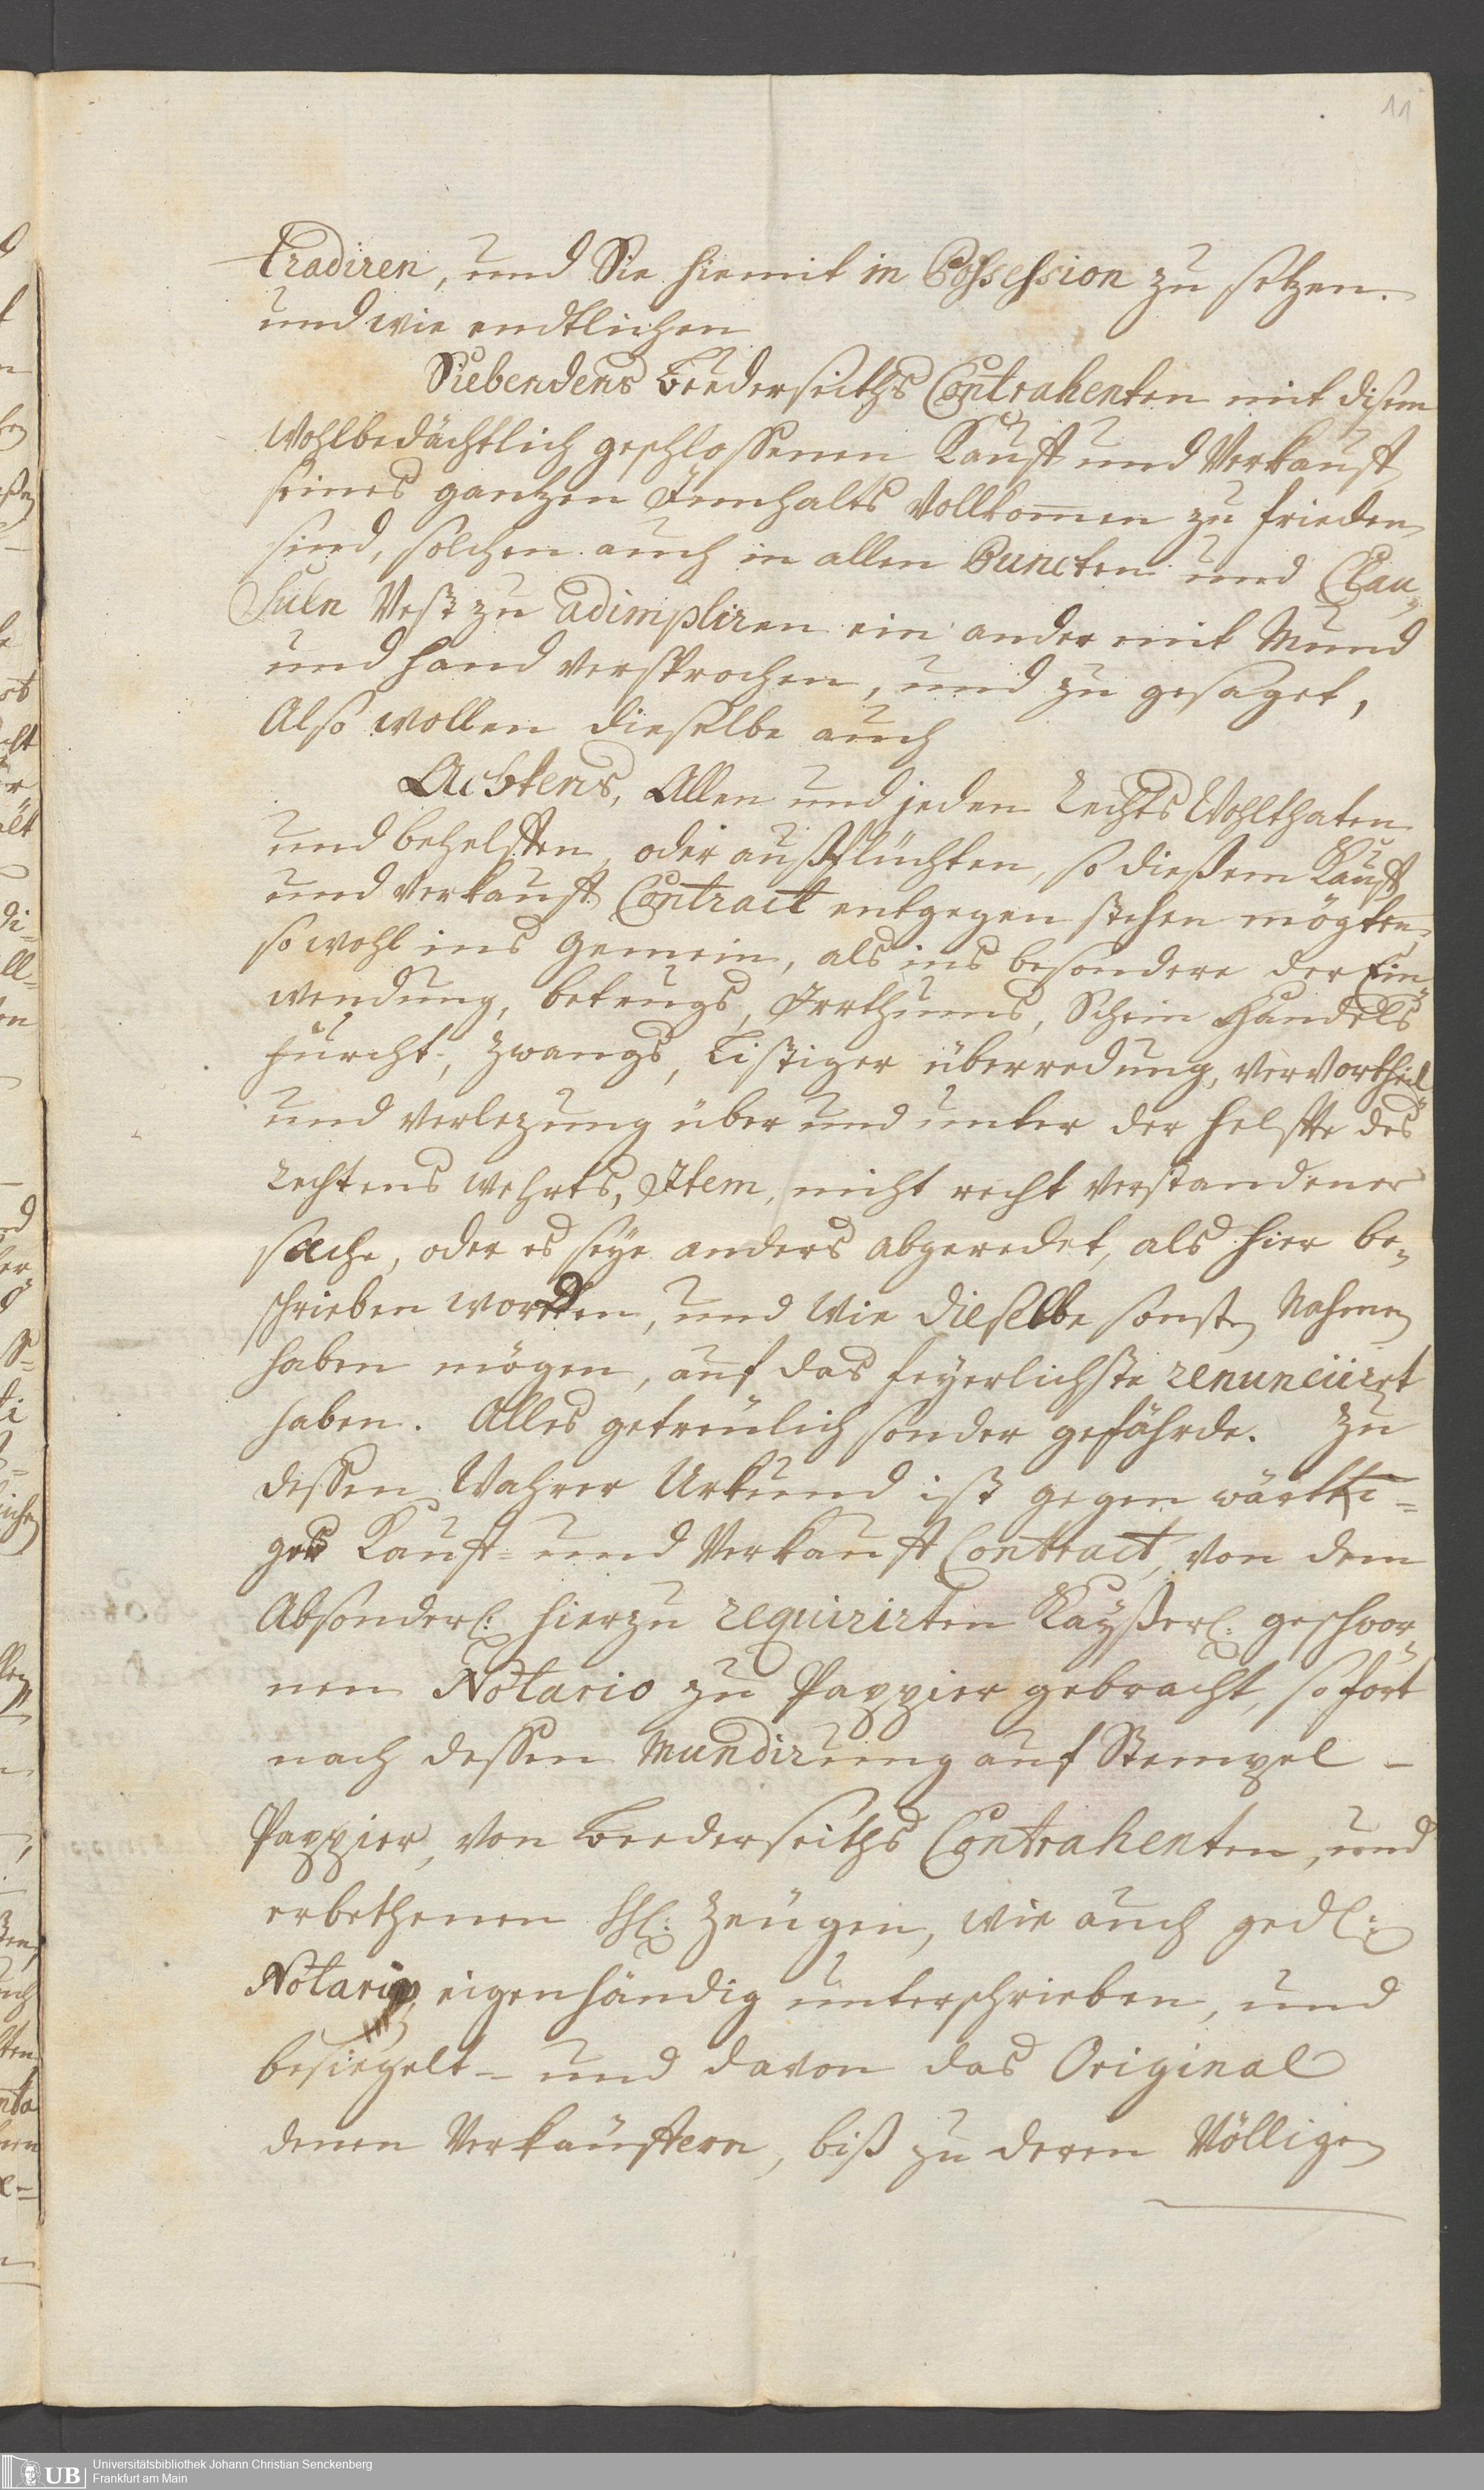 11
tradiren, und Sie hiemit in Possession zu setzen.
und wie endtlichen
Siebendens beederseiths Contrahenten mit disem
wohlbedächtlich geschlossenen Kauff und Verkauff
seines gantzen Innhalts vollkommen zu frieden
sind, solchen auch in allen Puncten und Clau„
suln Vest zu adimpliren ein ander mit Mund
und Hand versprochen, und zu gesaget,
Also wollen dieselbe auch
Achtens, Allen und jeden Rechts Wohlthaten
und behelffen, oder außflüchten, so dießem Kauff
und Verkauff Contract entgegen stehen mögten,
so wohl ins gemein, als ins besondere der Ein„
wendung, betrugs, Irrthums, Schein Handels
furcht, zwangs, Listiger überredung, vervortheil„
und verlezung über und unter der helffte des
rechtens wehrts, Item, nicht recht verstandener
sache, oder es seye anders abgeredet, als hier be„
schrieben worden, und wie dieselbe sonsten Nahmen
haben mögen, auf das feyerlichste renunciirt
haben. Alles getreulich sonder gefährde. Zu
dessen Wahrer Urkund ist gegen wärtti=
ger Kauff= und Verkauff Contract, von dem
Absonderl: hierzu requirirten Kayßerl: geschwor„
nen Notario zu Pappier gebracht, so fort
nach dessen Mundirung auf Stempel-
Pappier, von beederseiths Contrahenten, und
erbethenen HH: Zeugen, wie auch gedl:
Notario eigenhändig unterschrieben, und
besiegelt- und davon das Original
denen Verkäuffern, biß zu deren Völligen
UB Universitätsbibliothek Johann Christian Senckenberg
Frankfurt am Main